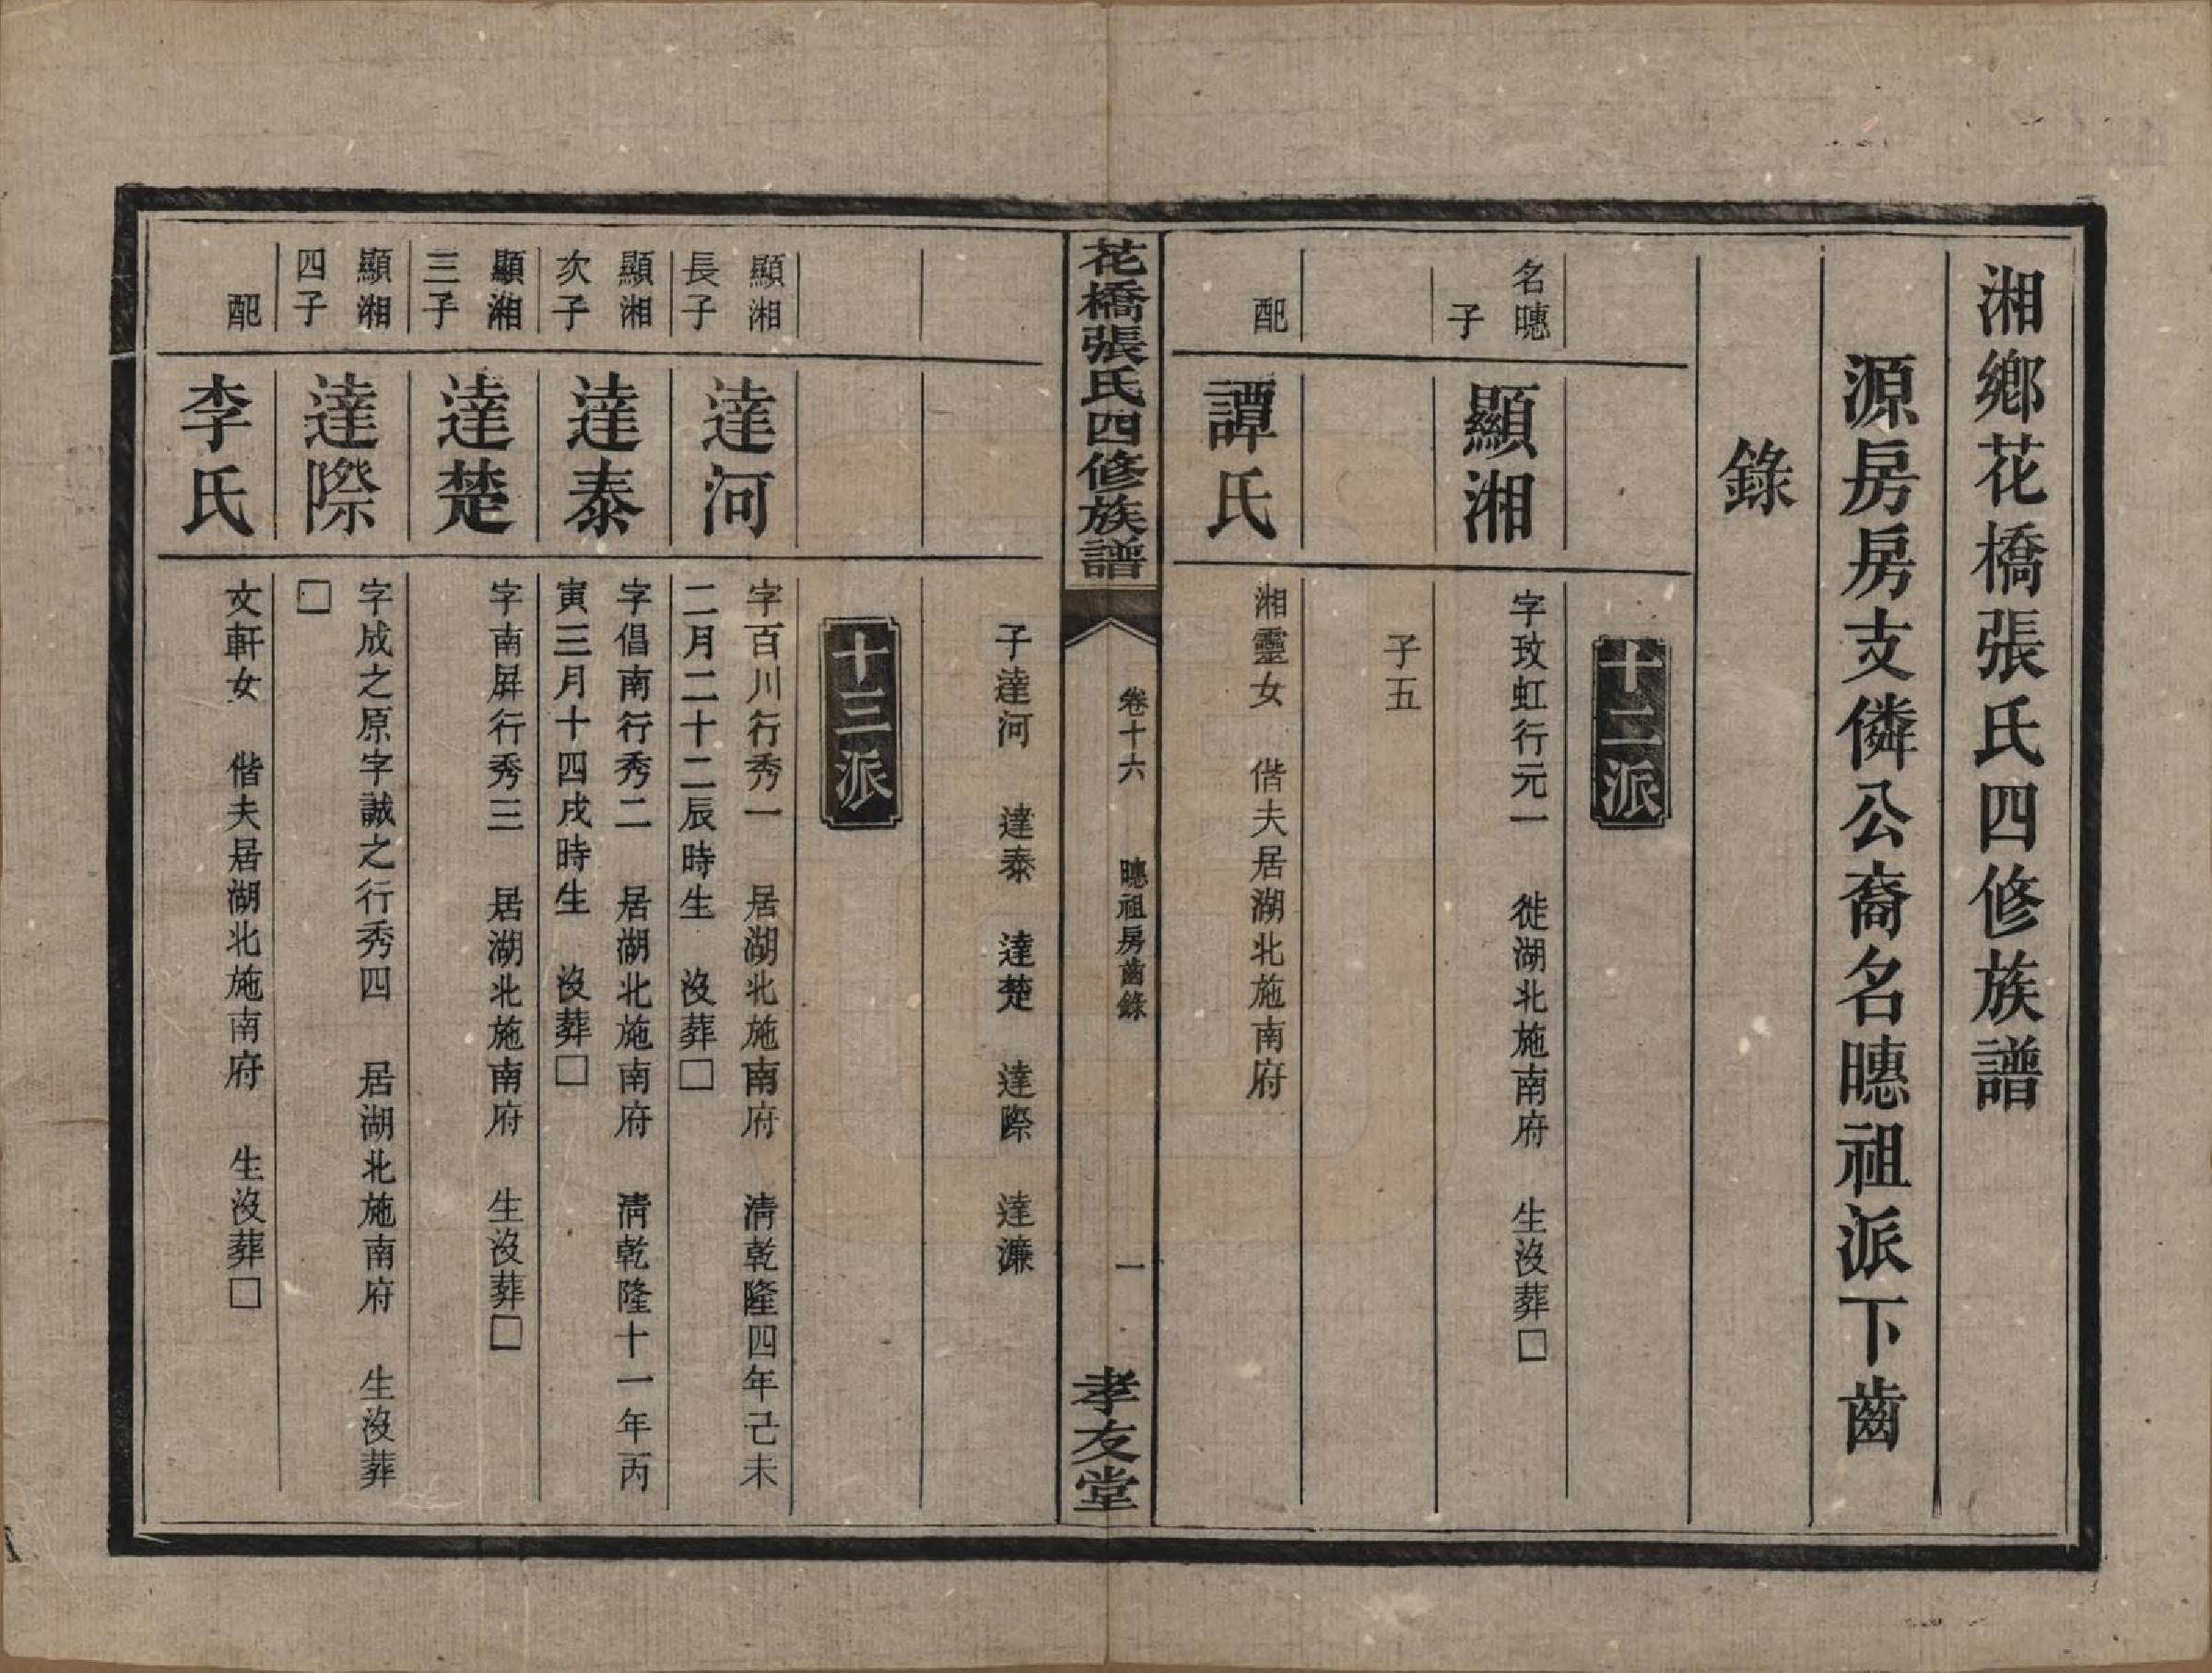 湘鄉花橋張氏四修族譜
源房房支憐公裔名㬤祖派下齒
錄
十二派
名㬤
子
顯湘
字玟虹行元一　徙湖北施南府　生沒葬□
子五
配
譚氏
湘靈女　偕夫居湖北施南府
花橋張氏四修族譜
卷十六　㬤祖房齒錄
一
孝友堂
子達河　達泰　達楚　達際　達濂
十三派
顯湘
長子
達河
字百川行秀一　居湖北施南府　清乾隆四年己未
二月二十二辰時生　沒葬□
顯湘
次子
達泰
字倡南行秀二　居湖北施南府　清乾隆十一年丙
寅三月十四戌時生　沒葬□
顯湘
三子
達楚
字南屏行秀三　居湖北施南府　生沒葬□
顯湘
四子
達際
字成之原字誠之行秀四　居湖北施南府　生沒葬
□
配
李氏
文軒女　偕夫居湖北施南府　生沒葬□